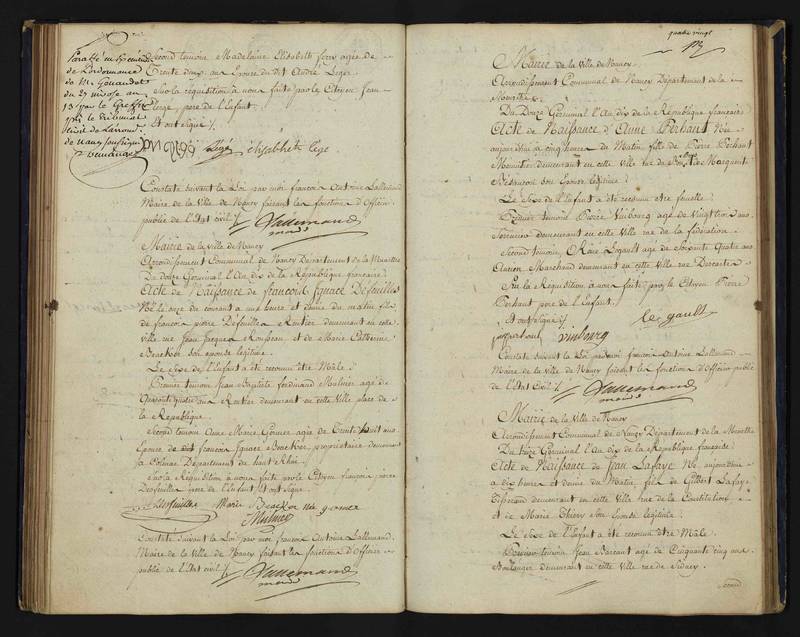 Second temoin Madelaine Elisabeth ferry agée de
Trente deux ans Epouse du dit André Leger
Sur la réquisition à nous faite par le Citoyen Jean
Leger pere de l'Enfant
Et ont signé
Paraffé en Exécution
de l'ordonnance
de Mr
du 27 nivose an
13 par le Greffier
du Tribunal
Civil de
de nancy soussigné
Légé élisabhete lege
Constaté Suivant la Loi par moi françois Antoine Lallemand
Maire de la Ville de Nancy faisant les fonctions d'Officier
public de l'Etat civil
Lallemand
maire
Mairie de la Ville de Nancy
Arrondissement Communal de Nancy Département de la Meurthe
Du Douze Germinal l'An dix de la République française
Acte de Naissance de françois Ignace Desfeuilles
Né le onze du courant à une heure et demie du matin fils
de françois pierre Desfeuilles Rentier demeurant en cette
ville rue Jean Jacques Rousseau et de Marie Catherine
Boecker son epouse légitime
Le Sexe de l'Enfant a été reconnu être Mâle
Premier temoin Jean Baptiste ferdinand Mulnier agé de
Quarante quatre ans Rentier demeurant en cette Ville place de
la République
Second temoin Anne Marie Gonner agée de Trente huit ans
Epouse de françois Ignace Boecker, propriétaire demeurant
à Colmar Département du haut Rhin
Sur la Réquisition à nous faite par le Citoyen françois pierre
Desfeuilles pere de l'Enfant Et ont signé
Desfeuilles Marie Becker née gonner
Mulnier
Constaté Suivant la Loi par moi françois Antoine Lallemand
Maire de la Ville de Nancy faisant les fonctions d'Officier
public de l'Etat civil
Lallemand
maire
quatre vingt
Mairie de la Ville de Nancy
Arrondissement Communal de Nancy Département de la
Meurthe
Du Douze Germinal l'An dix de la République française
Acte de Naissance d'Anne Perhant Née
aujourd'hui à cinq heures du Matin fille de Pierre Perhant
Menuisier demeurant en cette Ville rue du et de Marguerite
son Epouse légitime
Le Sexe de l'Enfant a été reconnu etre femelle
Premier temoin Pierre Vinbourg agé de Vingt trois ans
Serrurier demeurant en cette Ville rue de la fédération
Second temoin René Legault agé de Soixante Quatre ans
Ancien Marchand demeurant en cette Ville rue Descartes
Sur la Réquisition à nous faite par le Citoyen Pierre
Perhant pere de l'Enfant
Et ont signé
le gault
vinbourg
Constaté Suivant la Loi par moi françois Antoine Lallemand
Maire de la Ville de Nancy faisant les fonctions d'Officier public
de l'Etat Civil
Lallemand
maire
Mairie de la Ville de Nancy
Arrondissement Communal de Nancy Département de la Meurthe
Du treize Germinal l'An dix de la République française
Acte de Naissance de Jean Lafaye Né aujourd'hui
à dix heures et demie du Matin fils de Gilbert Lafaye
Tisserand demeurant en cette Ville rue de la Constitution
et de Marie Thiery Son Epouse légitime
Le Sexe de l'Enfant a été reconnu être Mâle
Premier temoin Jean Barcant agé de Cinquante cinq ans
Boulanger demeurant en cette Ville rue de Sidney
Second